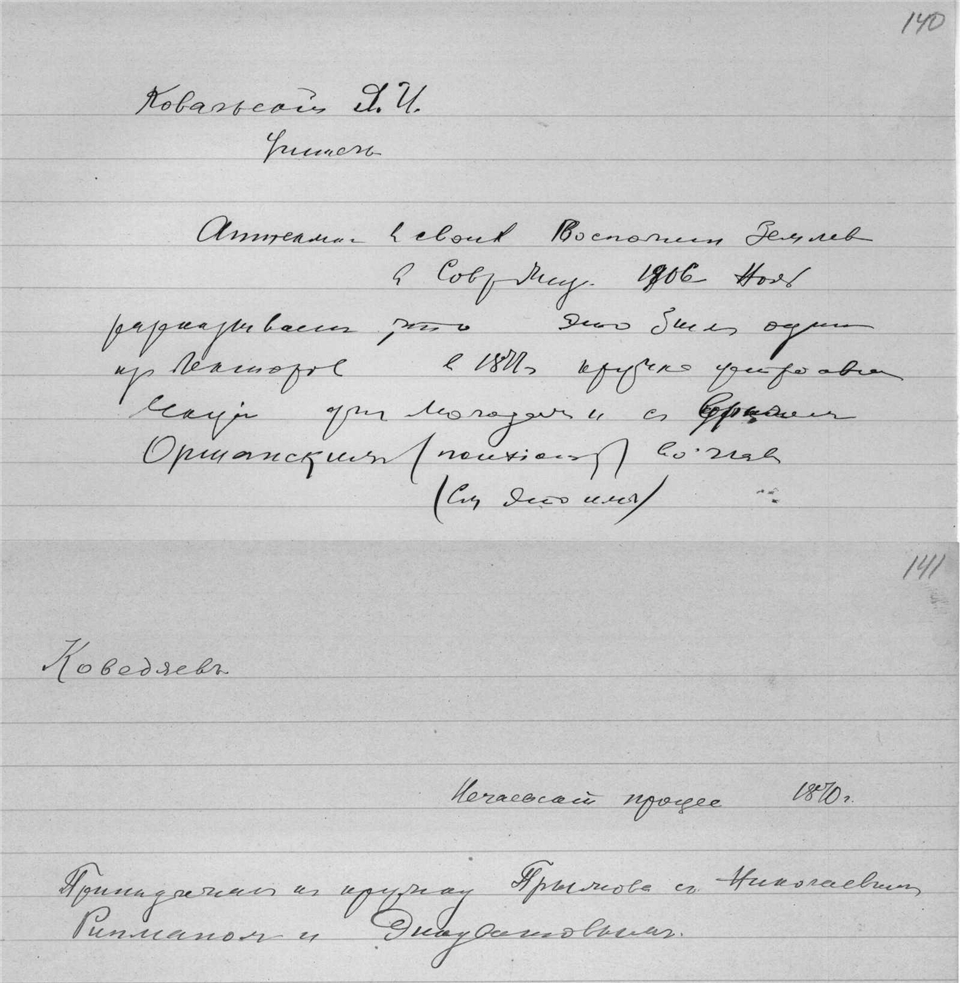 140
Ковальский Я. И.
Учитель
Аптекман в своих Воспомин Землев
в Совр Мир. 1906 Нояб
рассказывает что это был один
из лекторов в 1871 г кружка устр
лекций для молодежи и с врачом
Оршанским (психиатр) во глав
(См это имя)
141
Коведяевъ
Нечаевский процес 1870 г.
Принадлежал к кружку Прыжова съ Николаевым
Рипманом и Энкуватовымъ.